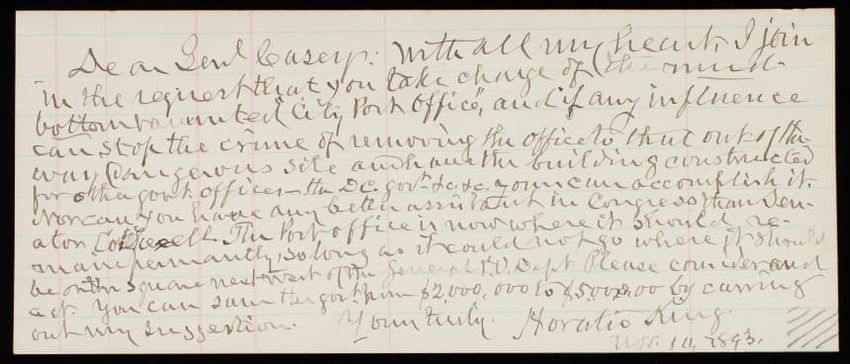 Dear Genl Casey: With all my heart I join
in the request that you take charge of (the mud-
bottom haunted "City Post Office", and if any influence
can stop the crime of removing the office to that out of the
way dangerous site and have the building constructed
for other govt. offices — the D.C. govt. &c. &c. your can accomplish it.
Nor can you have any better assistant in Congress than Sen-
ator Cockrell. The Post office is now where it should re-
main permantly, so long as it could not go where it should
be on the square next west of the General P.O. Dept. Please consider and
act. You can save the govt. from $2,000,000 to $5,000,000 by carrying
out my suggestion. Yours truly. Horatio King.
Nov. 10, 1893.